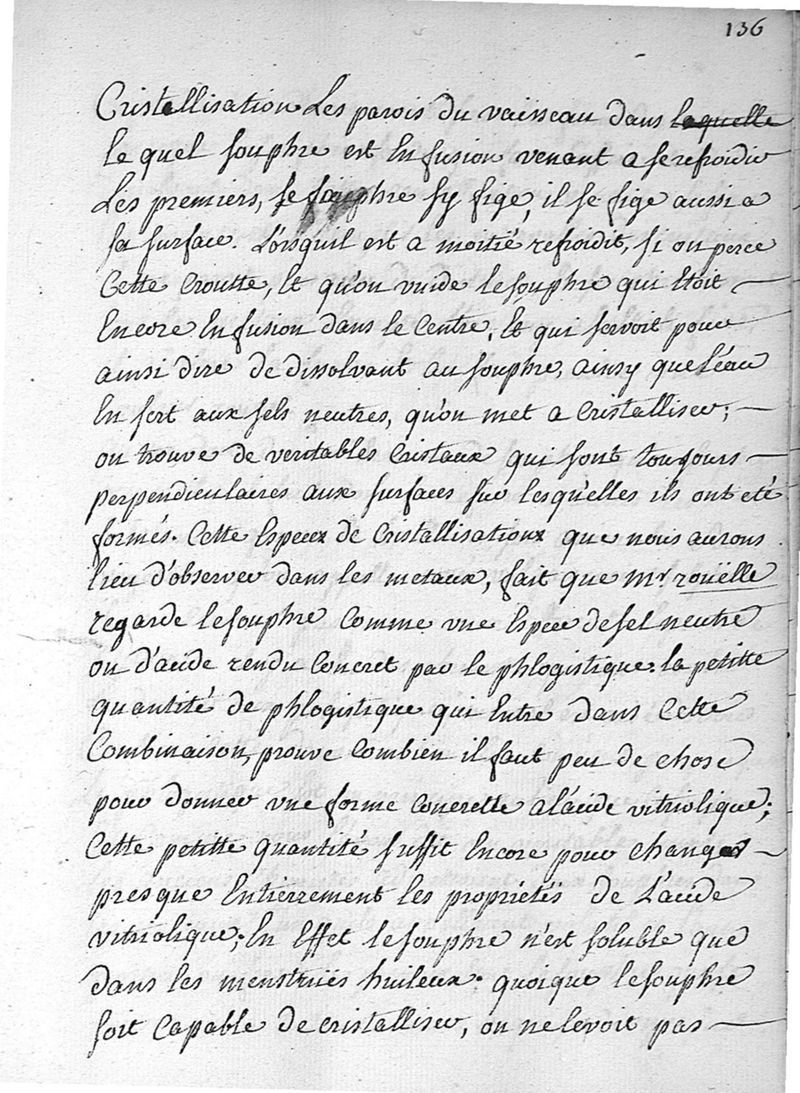 136
Cristallisation Les parois du vaisseau dans laquelle
le quel souphre est En fusion venant a se refroidir
Les premiers, le souphre sy fige, il se fige aussi a
sa surface. Lorsquil est a moitié refroidit, si on perce
Cette Croutte, Et qu'on vuide le souphre qui Etoit
Encore En fusion dans le Centre, Et qui servoit pour
ainsi dire de dissolvant au souphre, ainsy que L'eau
En sert aux sels neutres, qu'on met a Cristalliser;
on trouve de veritables Cristaux qui sont toujours
perpendiculaires aux surfaces sur lesqu'elles ils ont eté
formés. Cette Espece de Cristallisation que nous aurons
lieu d'observer dans les metaux, fait que Mr. roüelle
regarde le souphre Comme vne Espece de sel neutre
ou d'acide rendu Concret par le phlogistique. la petitte
quantité de phlogistique qui Entre dans Cette
Combinaison, prouve Combien il faut peu de chose
pour donner vne forme Concrette a l'acide vitriolique;
Cette petitte quantité suffit Encore pour changer
presque Entièrrement les propriétés de L'acide
vitriolique; En Effet le souphre n'est soluble que
dans les menstrües huileux. quoique le souphre
soit Capable de cristalliser, on ne le voit pas